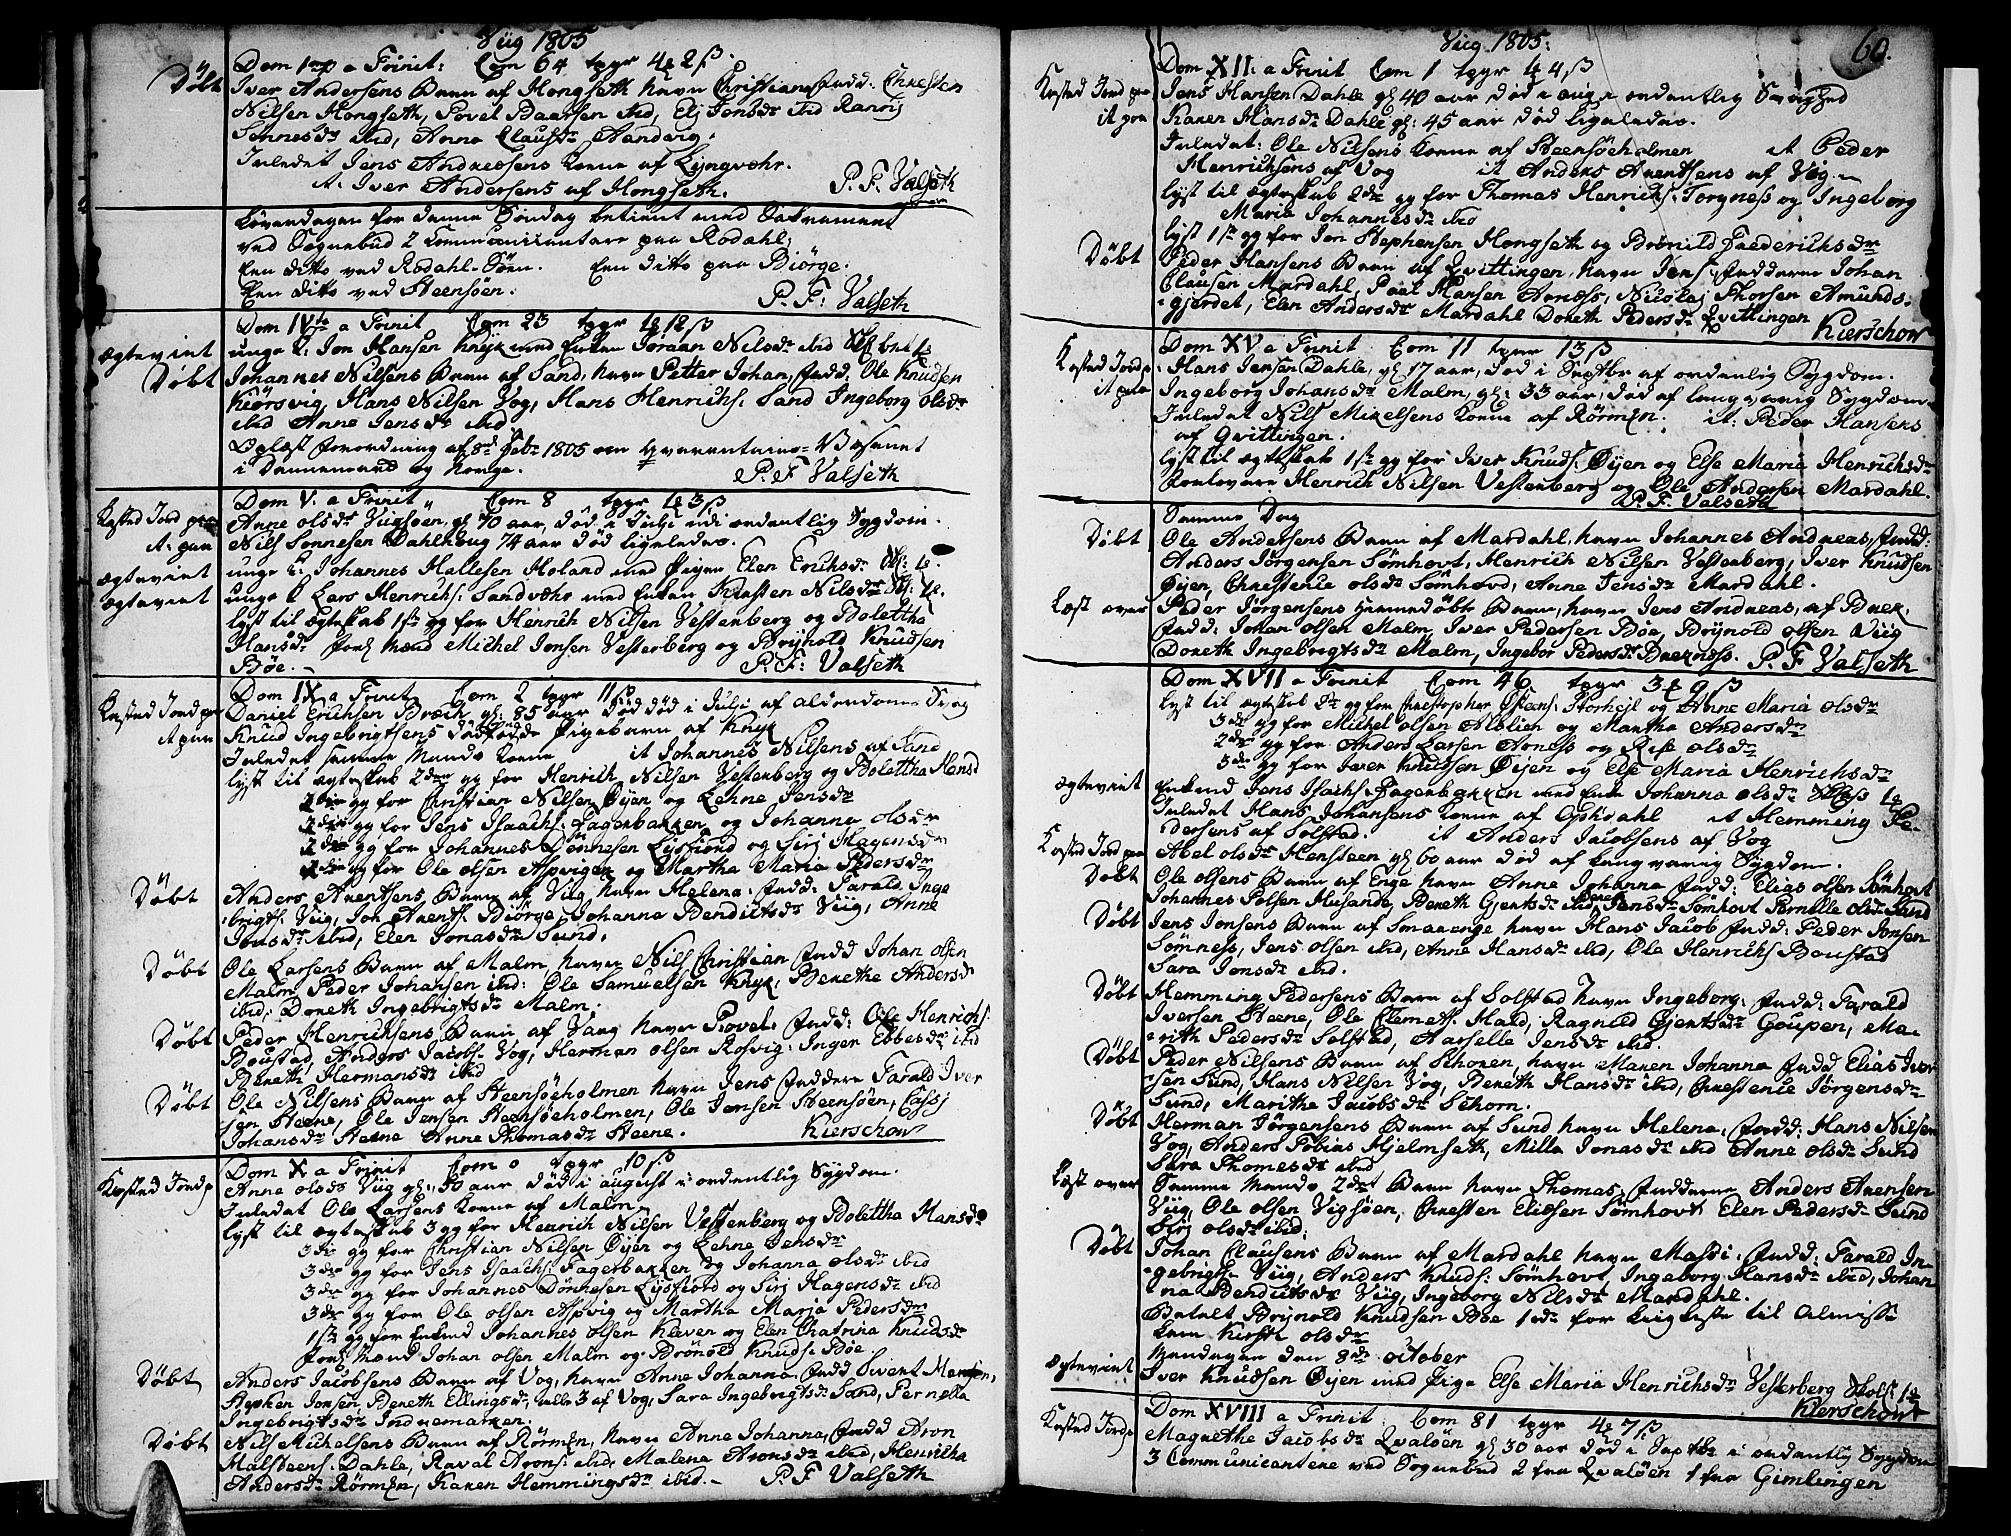 Viig 1805
Døbt
Dom 1 p a Trinit: Com 64 tavr 4 2 ß
Iver Andersens Barn af Hongseth havn Christian, fadd: Chresten
Nilsen Hongseth, Povel Baarsen ibd, Elj Jonsdr ibd Ranvj
Sønnesdr ibd, Anne Clausdr Aandvig.
Inledet Jens Andreæsens Kone af Lyngvæhr.
it. Iver Andersens af Hongseth. P. F. Valseth
Løverdagen for denne Søndag betient med Sacrament
ved Sognebud 2 Communicantere paa Rodahl,
Een ditto ved Rodahl-Søen. Een ditto paa Biørge.
Een ditto ved Steensøen. P. F. Valseth
Dom IV a Trinit Com 23 tavr 12 ß
ægteviet
unge K: Jon Hansen Knyk med Enken Joraan Nilsdr ibd
Døbt
Johannes Nilsens Barn af Sand, havn Petter Johan, fadd: Ole Knudsen
Kiørsvig, Hans Nilsen Vog, Hans Henrichs: Sand Ingeborg Olsdr
ibd Anne Jensdr ibid
Oplæst forordning af 8de Febr 1805 om Qvarantaine-Væsenet
i Dannemark og Norge. P. F Valseth
Dom V. a Trinit Com 8 tavr 3 ß
Kasted Jord paa
Anne olsdr Viigsøen, gl 70 aar, død i Julji udi ordentlig Sygdom.
it. paa
Nils Sønnesen Dahle og 74 aar død ligeledes.
ægteviet
unge K: Johannes Hallesen Holand med Pigen Elen Erichsdr
ægteviet
unge K Lars Henrichs: Sandvær med Enken Kirsten Nilsdr
lyst til ægteskab 1ste gg for Henrich Nilsen Vestenberg og Bolettha
Hansdr forl Mænd Michel Jonsen Vesterberg og Brynold Knudsen
Bøe. P. F: Valseth
Dom IX a Trinit Com 2 tavr 11 ß
Kasted Jord paa
Daniel Erichsen Bræck, gl: 85 aar død i Julji af alderdoms Svag
it paa
Knud Ingebrigtsens dødfødde Pigebarn af Knyk
Inledet samme Mands Kone it Johannes Nilsens af Sand
lyst til ægteskab 2den gg for Henrich Nilsen Vestenberg og Bolettha Hansd
2den gg for Christian Nilsen Øyen og Lehne Jensdr
2den gg for Jens Isaachs: Fagerbakken og Johanne olsdr
2den gg for Johannes Dønnesen Lysfiord og Sirj Hagensdr
2den gg for Ole olsen Aspvigen og Martha Maria Pedersdr
Døbt
Anders Arentsens Barn af Viig havn Helena, fadd: Tarald Inge
brigts. Viig, Jon Arents. Biørge, Johanna Bendictsdr Viig, Anne
Jonsdr ibid, Elen Jonasdr Sund.
Døbt
Ole Larsens Barn af Malm, havn Nils Christian fadd Johan olsen
Malm, Peder Johansen ibd: Ole Samuelsen Knyk, Berethe Andersd
ibid, Doreth Ingebrigtsdr Malm.
Døbt
Peder Henrichsens Barn af Vaag havn Povel, fadd: Ole Henrichs:
Boustad, Anders Jacobs. Vog, Herman olsen Rosvig, Inger Ebbesdr ibid
Bereth Hermansdr ibid
Døbt
Ole Nilsens Barn af Steensøeholmen havn Jens faddere Tarald Iver
sen Steene, Ole Jensen Steensøeholmen, Ole Jonsen Steensøen,
Johansdr Steene Anne Thomasdr Steene. Kierschow
Dom X a Trinit Com 0 tavr 10 ß
Kasted Jord p
Anne olsdr Viig gl: 50 aar død i august i ordentlig Sygdom.
Inledet Ole Larsens Kone af Malm.
lyst til ægteskab 3 gg for Henrich Nilsen Vestenberg og Bolettha Hansdr
3die gg for Christian Nilsen Øyen og Lehne Jensdr
3die gg for Jens Isaachs: Fagerbakken og Johanna olsdr ibid
3die gg for Johannes Dønnesen Lysfiord og Sirj Hagensdr ibid
3die gg for Ole olsen Aspvig og Martha Maria Pedersdr
1ste gg for Enkmd Johannes olsen Kleven og Elen Chatrina Knudsdr
forl: Mænd Johan olsen Malm og Brønold Knuds: Bøe
Døbt
Anders Jacobsens Barn af Vog, havn Anne Johanna, fadd Sivert
Stephen Jonsen, Bereth Ellingsdr, alle 3 af Vog, Sara Ingebrigtsdr Sand, Pernella
Ingebrigtsdr Indremarken.
Døbt
Nils Michelsens Barn af Rørmen, havn Anne Johanna, fadd Aron
Halsteens. Dahle, Raval Arons. ibd, Malena Aronsdr ibid, Henricha
Andersdr Rørmen, Karen Hemmingsdr ibid. P. F Valseth
Viig 1805:
60.
Dom XII: a Trinit Com 1 tavr 4 4 ß
Kasted Jord paa
Jens Hansen Dahle gl 40 aar død i aug i ordentlig Svaghed
it paa
Karen Hansdr Dahle gl: 45 aar død ligeledes.
Inledet: Ole Nilsens Kone af Steensøeholmen it Peder
Henrichsens af Vog it Anders Arentsens af Viig
lyst til ægteskab 2den gg for Thomas Henrichs: Torgnæss og Ingeborg
Maria Johannesdr ibid
lyst 1ste gg for Jon Stephensen Hongseth og Brønild Frederichsdr
Døbt
Peder Hansens Barn af Qvittingen, havn Jens, faddere Johan
Clausen Mardahl, Paal Hansen Arnæss, Nicolaj Thorsen Amunds-
gjerdet, Elen Andersdr Mardahl Doreth Pedersdr Qvittingen Kierschow
Dom XV a Trinit Com 11 tavr 13 ß
Kasted Jord p
Hans Jensen Dahle, gl 17 aar, død i Septbr af ordenlig Sygdom.
it paa
Ingeborg Johansdr Malm, gl: 33 aar, død af langvarig Sygdom
Inledet Nils Mikelsens Kone af Rørmen. it: Peder Hansens
af Qvittingen.
lyst til ægteskab 1ste gg for Iver Knuds: Øyen og Else Maria Henrichsdr
Henrich Nilsen Vestenberg og Ole Andersen Mardahl.
P. F. Valseth
Samme Dag
Døbt
Ole Andersens Barn af Mardahl, havn Johannes Andreas, fadd:
Anders Jørgensen Sømhovt, Henrich Nilsen Vestenberg, Iver Knudsen
Øyen, Chrestence olsdr Sømhovd, Anne Jensdr Mardahl.
Læst over
Peder Jørgensens hiemmedøbte Barn, havn Jens Andreas, af Bæk.
fadd: Johan olsen Malm, Iver Pedersen Bøe, Brynold olsen Viig
Doreth Ingebrigtsdr Malm, Ingebor Pedersdr Bæknæss. P. F Valseth
Dom XVII a Trinit Com 46 tavr 3 9 ß
lyst til ægteskab gg for Christopher Olsen Storhejl og Anne Maria olsdr
3die gg for Michel olsen Aslien og Martha Andersdr
2den gg for Anders Larsen Arnæss og Else olsdr
3die gg for Iver Knudsen Øyen og Else Maria Henrichsdr
ægteviet
Enkmd Jens Isachs: Fagerbakken med Enke Johanna olsdr
Inledet Hans Johansens Kone af Opkdahl it Hemming Pe-
dersens af Solstad. it Anders Jacobsens af Vog
Kasted Jord paa
Abel olsdr Hensteen gl 60 aar død af langvarig Sygdom.
Døbt
Ole olsens Barn af Enge havn Anne Johanna fadd: Elias olsen Sømhovt
Johannes Polsen Husande, Bereth Gjertsdr ibid, Jensdr Sømhovt Pernelle olsdr Sand
Døbt
Jens Jonsens Barn af Smaaenge havn Hans Jacob fadd: Peder Jonsen
Sømnæss, Jens olsen ibid, Anne Hansdr ibid, Ole Henrichs Boustad
Sara Jonsdr ibd.
Døbt
Hemming Pedersens Barn af Solstad havn Ingeborg, fadd: Tarald
Iversen Steene, Ole Clemets. Hald, Ragnild Gjertsdr Goupen, Ma-
rith Pedersdr Solstad, Aarselle Jensdr ibd.
Døbt
Peder Nilsens Barn af Skoren, havn Maren Johanna fadd Elias Iver
sen Sund, Hans Nilsen Vog, Bereth Hansdr ibid, Chrestence Jørgensdr
Sund, Marithe Jacobsdr Skorn.
Døbt
Herman Jørgensens Barn af Sund havn Helena, fadd: Hans Nilsen
Vog, Anders Tobias Hjelmseth, Milla Jonasdr ibid Anne olsdr Sund
Sara Thomesdr ibid
Læst over
Samme Mands 2det Barn havn Thomas, fadderne Anders Arensen
Viig, Ole olsen Vigsøen, Chresten Eliesen Sømhovt Elen Pedersdr Sund
Sirj olsdr ibid.
Døbt
Johan Clausens Barn af Mardahl havn Massi, fadd: Tarald In-
gebrigts. Viig, Anders Knuds: Sømhovt, Ingeborg Hansdr ibid, Johan
na Bendictsdr Viig, Ingeborg Nilsdr Mardahl.
Betalt Brynold Knudsen Bøe for til Almisse
Lem Kirsti olsdr
Mandagen den 8de october
ægteviet
Iver Knudsen Øyen med Pige Else Maria Henrichsdr Vesterberg
Kierschow
Dom XVIII a Trinit. Com 81 tavr 4 7 ß
Kasted Jord p
Magrethe Jacobsdr Qvaløen gl 30 aar død i Septbr i ordentlig Sygdom
3 Communicantere ved Sognebud 2 fra Qvaløen 1 fra Gimlingen